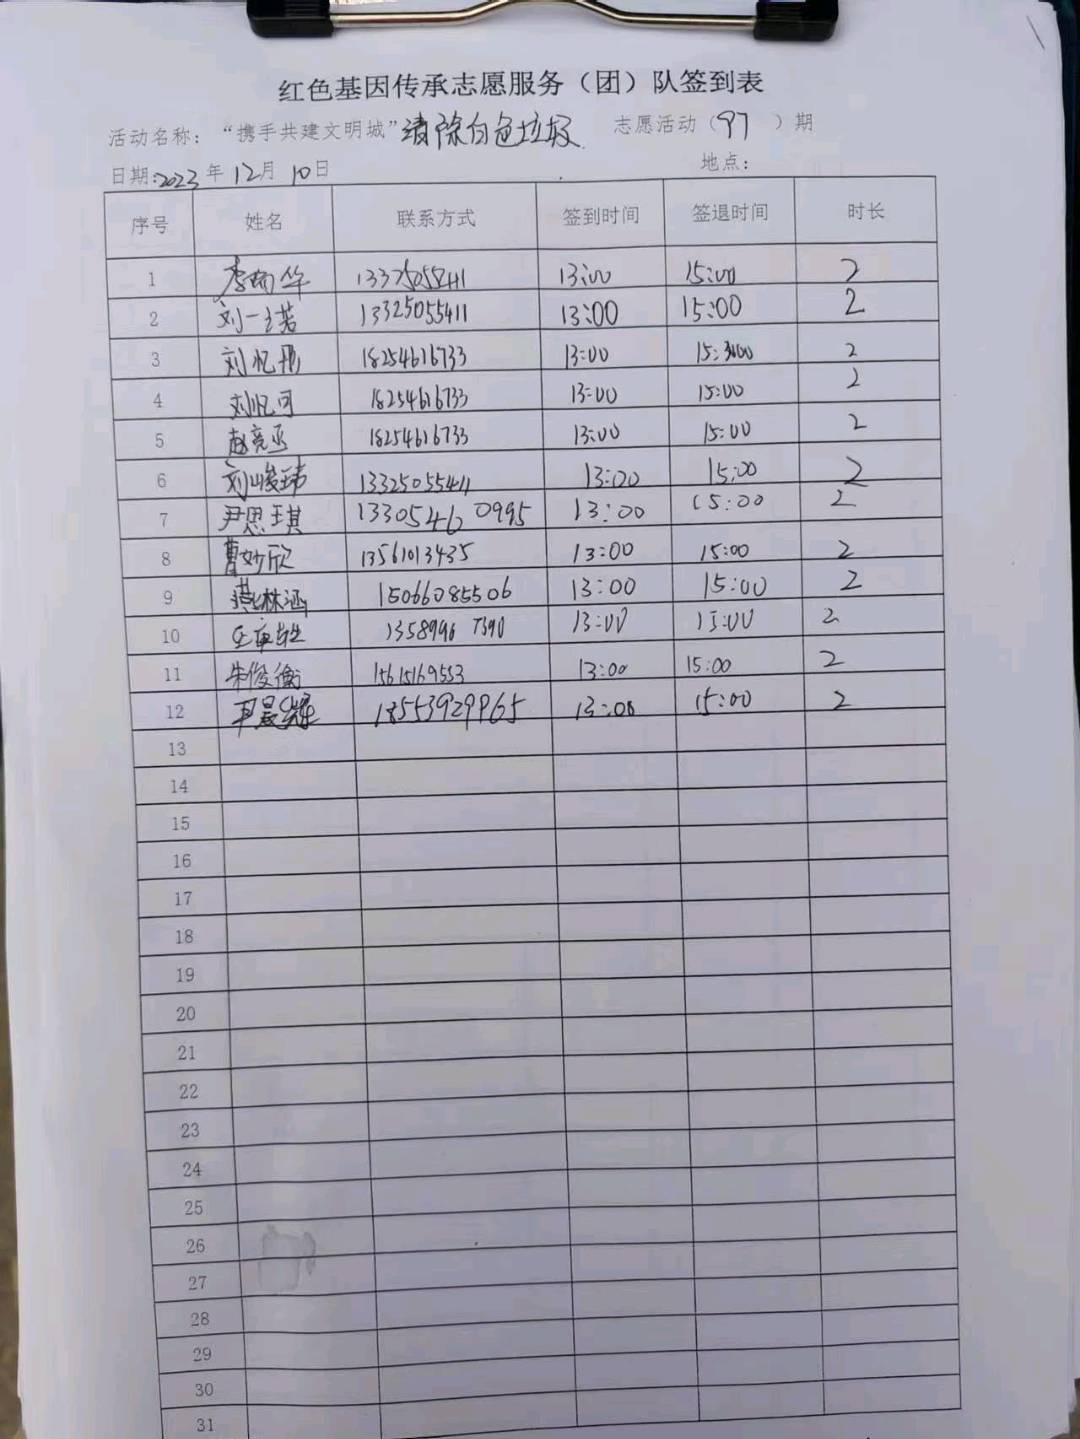 红色基因传承志愿服务（团）队签到表
活动名称：“携手共建文明城”清除白色垃圾 志愿活动（97）期
日期:2023年12月10日 地点：
序号 姓名 联系方式 签到时间 签退时间 时长
1 李 华 13325055411 13:00 15:00 2
2 刘一诺 13325055411 13:00 15:00 2
3 刘忆彤 18254616733 13:00 15: 00 2
4 刘忆可 18254616733 13:00 15:00 2
5 赵亮丞 18254616733 13:00 15:00 2
6 刘峻玮 13325055411 13:00 15:00 2
7 尹思琪 13305460995 13:00 15:00 2
8 曹妙欣 13561013435 13:00 15:00 2
9 林涵 15066085506 13:00 15:00 2
10 13589967390 13:00 15:00 2
11 朱俊衡 15615169553 13:00 15:00 2
12 18553929965 13:00 15:00 2
13
14
15
16
17
18
19
20
21
22
23
24
25
26
27
28
29
30
31